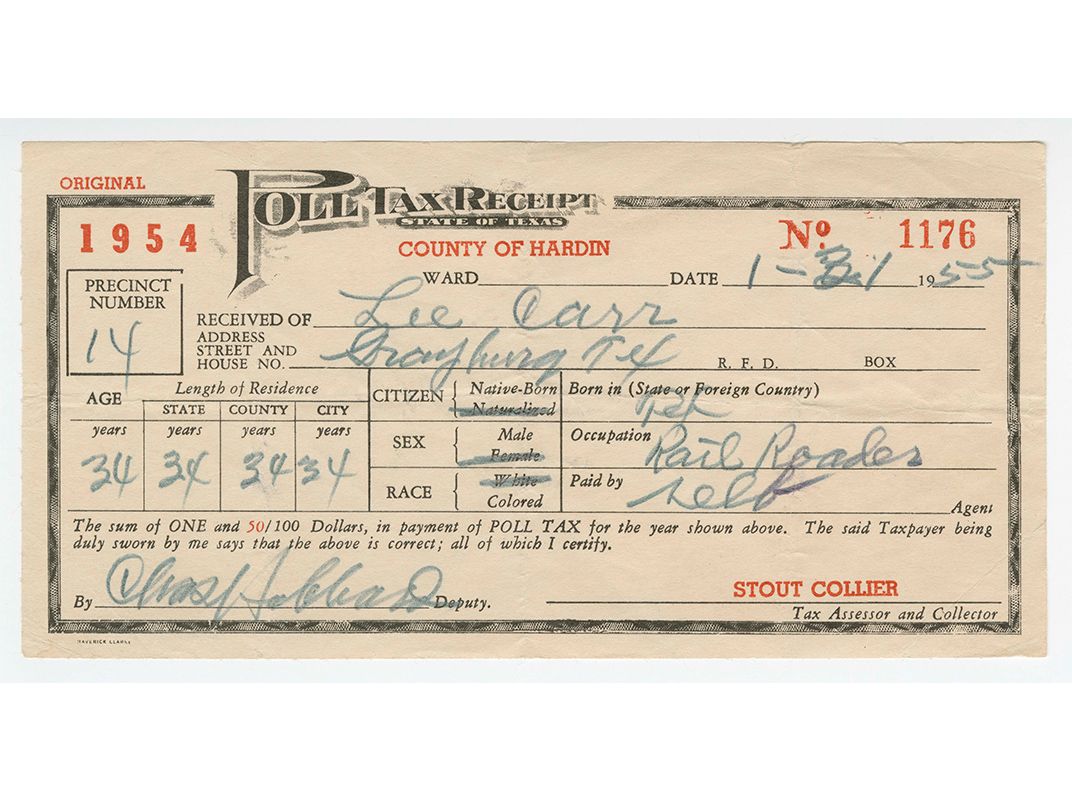 ORIGINAL
POLL TAX RECEIPT
STATE OF TEXAS
1954
COUNTY OF HARDIN
Nº 1176
WARD DATE 1-31 1955
PRECINCT NUMBER
14
RECEIVED OF Lee Carr
ADDRESS
STREET AND
HOUSE NO. Grayburg Tex R. F. D. BOX
AGE
years
34
Length of Residence
STATE COUNTY CITY
years years years
34 34 34
CITIZEN { Native-Born
Naturalized
SEX { Male
Female
RACE { White
Colored
Born in (State or Foreign Country)
Tex
Occupation Rail Roader
Paid by self
Agent
The sum of ONE and 50/100 Dollars, in payment of POLL TAX for the year shown above. The said Taxpayer being
duly sworn by me says that the above is correct; all of which I certify.
By Chas Hobbard Deputy.
STOUT COLLIER
Tax Assessor and Collector
MAVERICK CLARKE